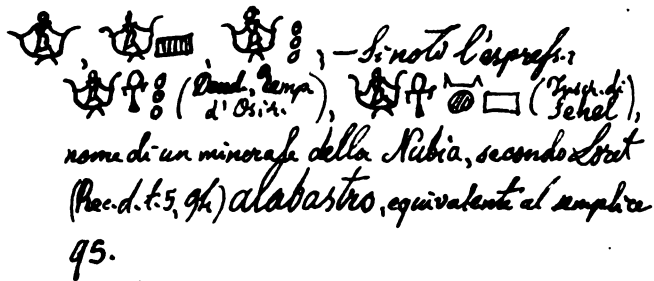 — Si noti l'espress:
(Dend., Temp. d'Osir.), (Inscr. di Sehel),
nome di un minerale della Nubia, secondo Loret
(Rec. d. t. 5, 94) alabastro, equivalente al semplice
qs.